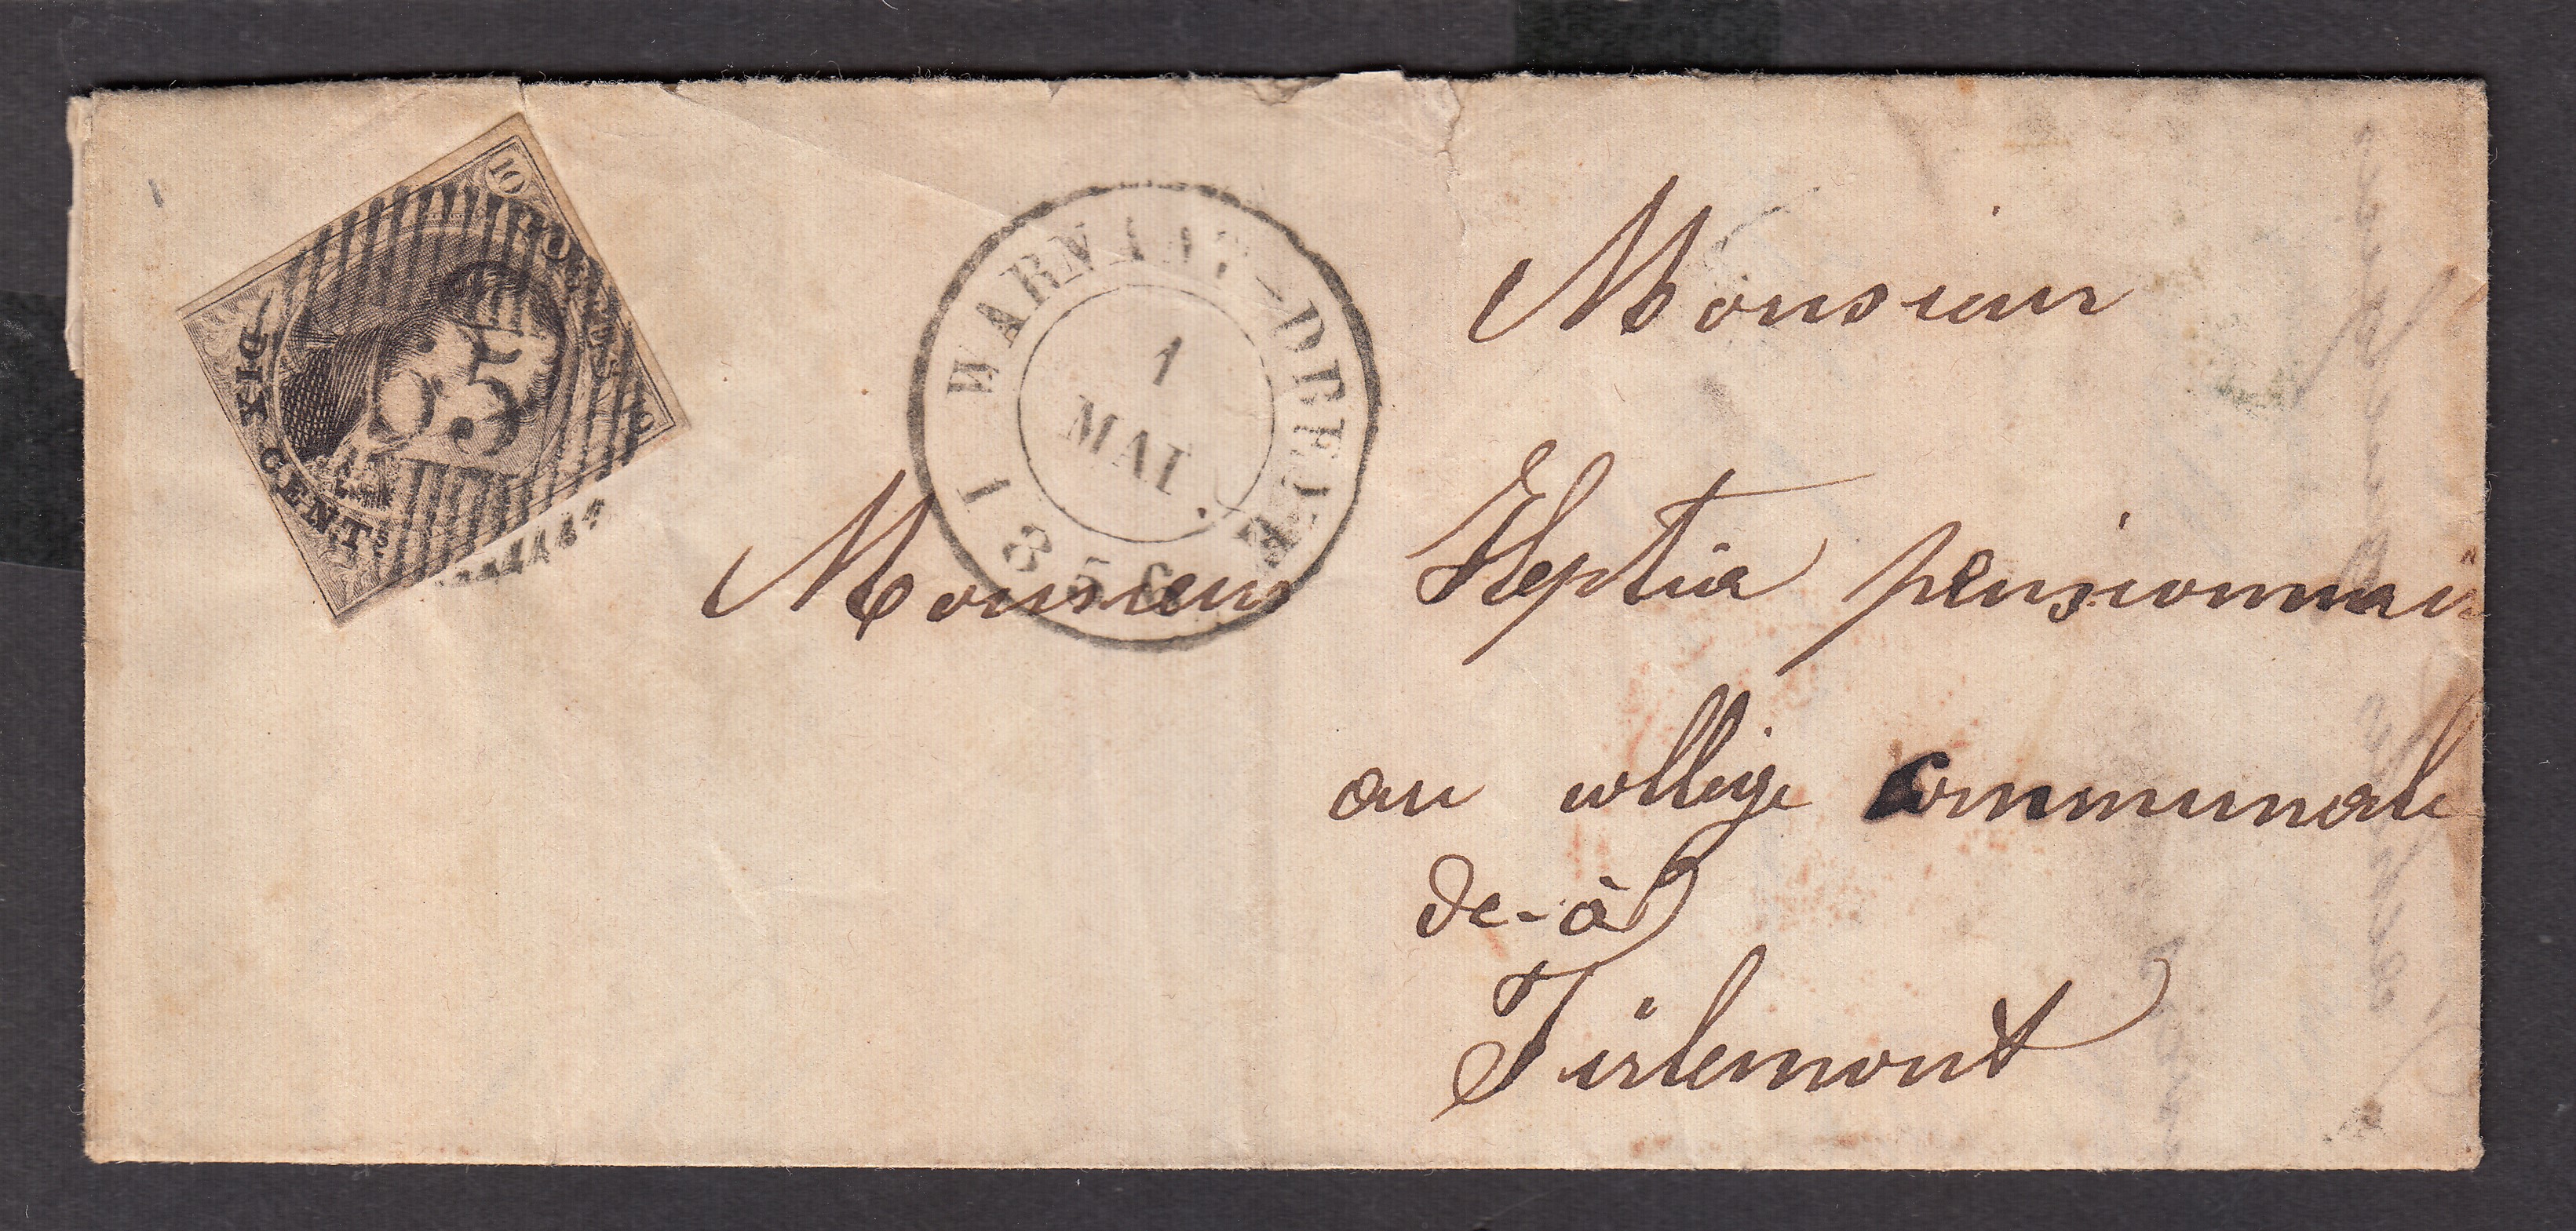 10 POSTES
DIX CENTS
WARNANT-DREYE
1
MAI.
185
Monsieur
Monsieur Heptia pensionnair
au collège communale
de-à
Tirlemont